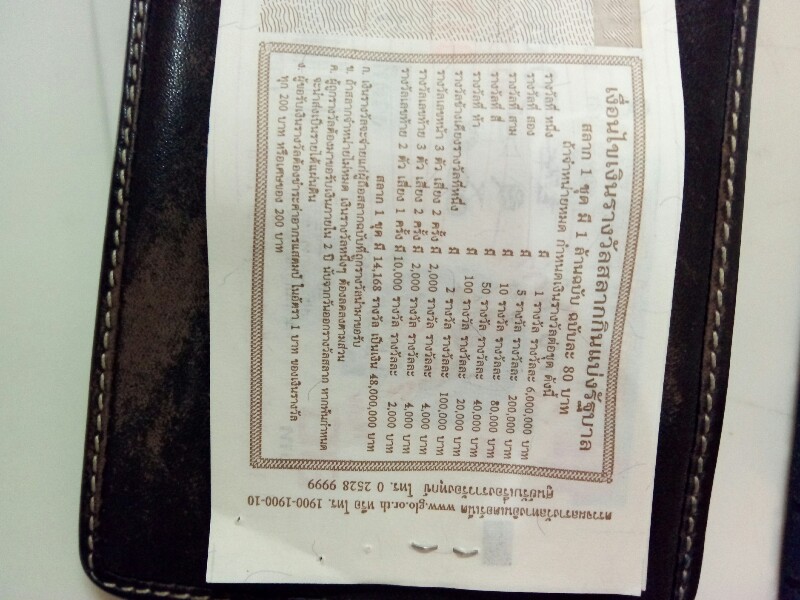 เงื่อนไขเงินรางวัลสลากกินแบ่งรัฐบาล
สลาก 1 ชุด มี 1 ล้านฉบับ ฉบับละ 80 บาท
ถ้าจำหน่ายหมด กำหนดเงินรางวัลต่อชุด ดังนี้
รางวัลที่ หนึ่ง มี 1 รางวัล รางวัลละ 6,000,000 บาท
รางวัลที่ สอง มี 5 รางวัล รางวัลละ 200,000 บาท
รางวัลที่ สาม มี 10 รางวัล รางวัลละ 80,000 บาท
รางวัลที่ สี่ มี 50 รางวัล รางวัลละ 40,000 บาท
รางวัลที่ ห้า มี 100 รางวัล รางวัลละ 20,000 บาท
รางวัลข้างเคียงรางวัลที่หนึ่ง มี 2 รางวัล รางวัลละ 100,000 บาท
รางวัลเลขหน้า 3 ตัว เสี่ยง 2 ครั้ง มี 2,000 รางวัล รางวัลละ 4,000 บาท
รางวัลเลขท้าย 3 ตัว เสี่ยง 2 ครั้ง มี 2,000 รางวัล รางวัลละ 4,000 บาท
รางวัลเลขท้าย 2 ตัว เสี่ยง 1 ครั้ง มี 10,000 รางวัล รางวัลละ 2,000 บาท
สลาก 1 ชุด มี 14,168 รางวัล เป็นเงิน 48,000,000 บาท
ก. เงินรางวัลจะจ่ายแก่ผู้ถือสลากฉบับที่ถูกรางวัลนำมาขอรับ
ข. ถ้าสลากจำหน่ายไม่หมด เงินรางวัลหนึ่งๆ ต้องลดลงตามส่วน
ค. ผู้ถูกรางวัลต้องมาขอรับเงินภายใน 2 ปี นับจากวันออกรางวัลสลาก หากพ้นกำหนด
จะนำส่งเป็นรายได้แผ่นดิน
ง. ผู้ขอรับเงินรางวัลต้องชำระค่าอากรแสตมป์ ในอัตรา 1 บาท ของเงินรางวัล
ทุก 200 บาท หรือเศษของ 200 บาท
ศูนย์รับเรื่องราวร้องทุกข์ โทร. 0 2528 9999
ตรวจผลรางวัลทางอินเตอร์เน็ต www.glo.or.th หรือ โทร. 1900-1900-10